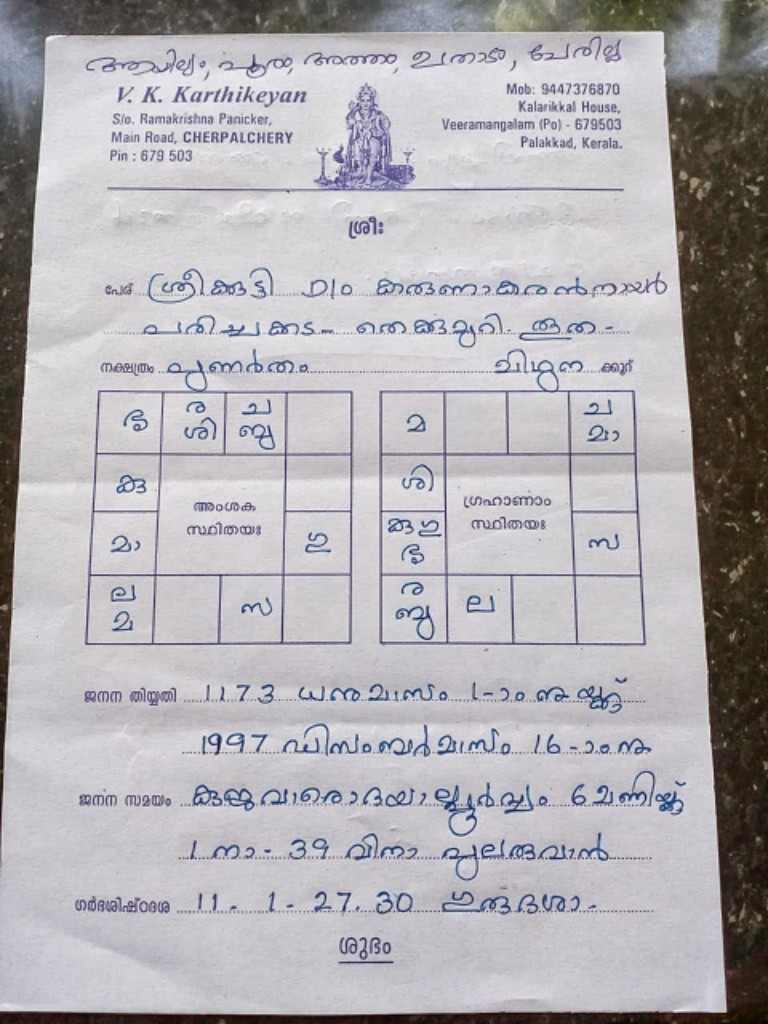 ആയില്യം, പൂരം, അത്തം, ഉത്രാടം, ചേരില്ല
V. K. Karthikeyan
S/o. Ramakrishna Panicker,
Main Road, CHERPALCHERY
Pin : 679 503
Mob: 9447376870
Kalarikkal House,
Veeramangalam (Po) - 679503
Palakkad, Kerala.
ശ്രീഃ
പേര് ശ്രീക്കുട്ടി D/o കരുണാകരൻനായർ
തെക്കുമുറി. തൂത -
നക്ഷത്രം പുണർതം മിഥുന ക്കൂറ്
ര ച
ശി ബു
കു
അംശക
സ്ഥിതയഃ
മാ ഗു
ല
മ സ
മ ച
മാ
ശി
ഗ്രഹാണാം
സ്ഥിതയഃ
കു ഗു
സ
ര
ബു ല
ജനന തിയ്യതി 1173 ധനുമാസം 1-ാം നു യ്ക്ക്
1997 ഡിസംബർമാസം 16-ാം നു
ജനന സമയം കുജവാരൊദയാല്പൂർവ്വം 6 മണിയ്ക്ക്
1 നാ - 39 വിനാ പുലരുവാൻ
ഗർഭശിഷ്ഠദശ 11 - 1 - 27. 30 ഗുരുദശാ -
ശുഭം